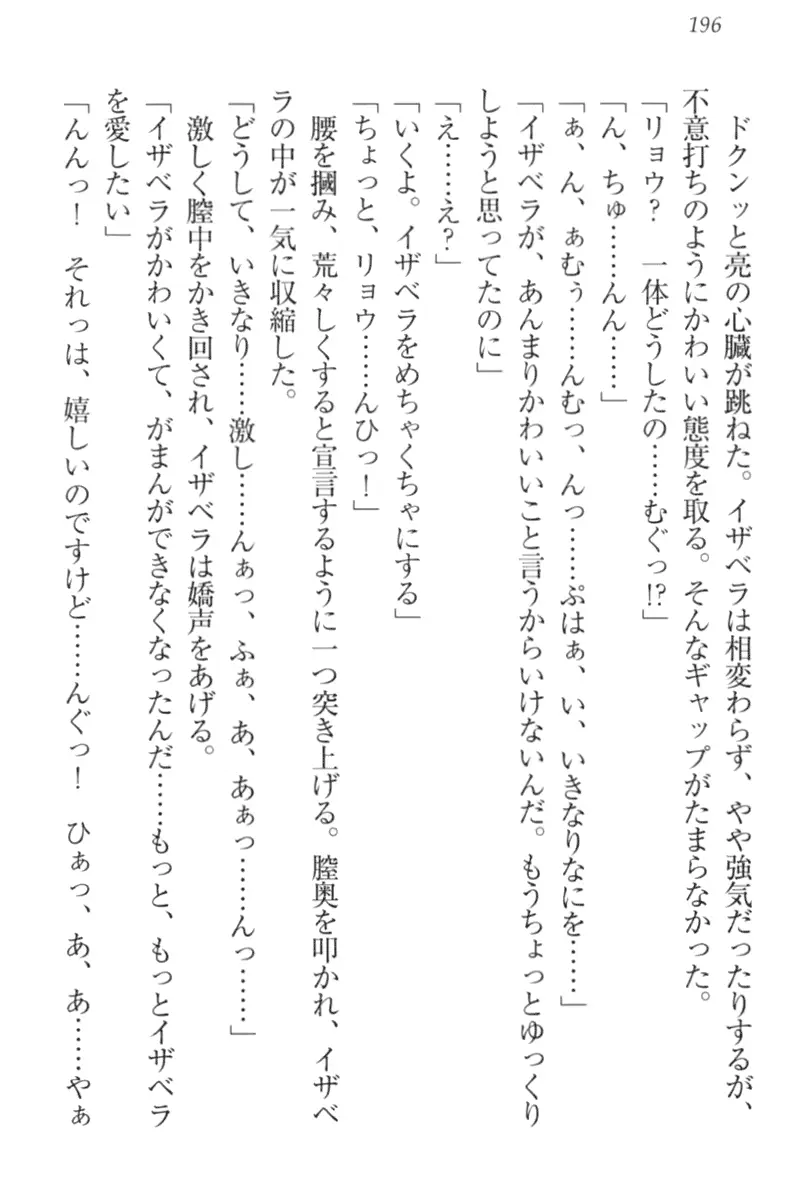 196
ドクンッと亮の心臓が跳ねた。イザベラは相変わらず、やや強気だったりするが、
不意打ちのようにかわいい態度を取る。そんなギャップがたまらなかった。
「リョウ？　一体どうしたの……むぐっ!?」
「ん、ちゅ……んん……」
「ぁ、ん、ぁむぅ……んむっ、んっ……ぷはぁ、い、いきなりなにを……」
「イザベラが、あんまりかわいいこと言うからいけないんだ。もうちょっとゆっくり
しようと思ってたのに」
「え……え？」
「いくよ。イザベラをめちゃくちゃにする」
「ちょっと、リョウ……んひっ！」
腰を摑み、荒々しくすると宣言するように一つ突き上げる。膣奥を叩かれ、イザベ
ラの中が一気に収縮した。
「どうして、いきなり……激し……んぁっ、ふぁ、あ、あぁっ……んっ……」
激しく膣中をかき回され、イザベラは嬌声をあげる。
「イザベラがかわいくて、がまんができなくなったんだ……もっと、もっとイザベラ
を愛したい」
「んんっ！　それっは、嬉しいのですけど……んぐっ！　ひぁっ、あ、あ……やぁ